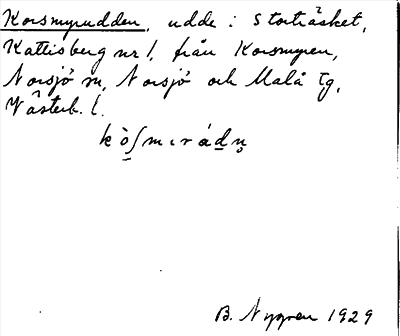 Korsmyrudden, udde i Storträsket,
Kattisberg nr 1, från Korsmyren,
Norsjö sn, Norsjö och Malå tg,
Västerb. l.
B. Nygren 1929